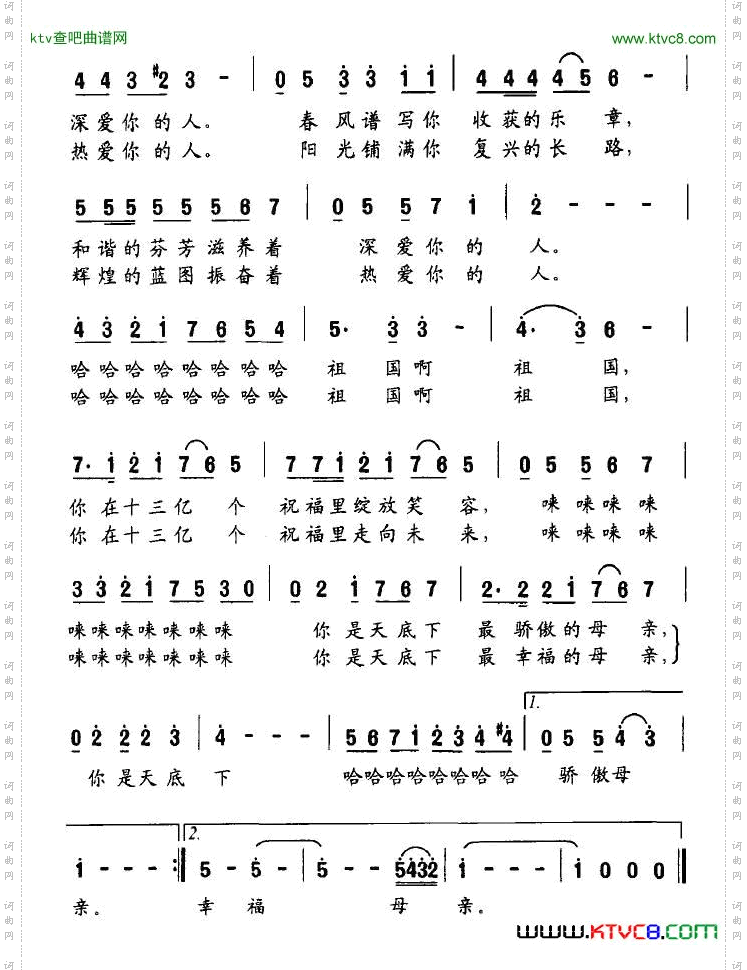 ktv查吧曲谱网 www.ktvc8.com
4 4 3 #2 3 - | 0 5 3 3 1 1 | 4 4 4 4 5 6 - |
深爱你的人。 春风谱写你 收获的乐章,
热爱你的人。 阳光铺满你 复兴的长路,
5 5 5 5 5 5 6 7 | 0 5 5 7 1 | 2 - - - |
和谐的芬芳滋养着 深爱你的人。
辉煌的蓝图振奋着 热爱你的人。
4 3 2 1 7 6 5 4 | 5· 3 3 - | 4· 3 6 - |
哈哈哈哈哈哈哈哈 祖国啊 祖国,
哈哈哈哈哈哈哈哈 祖国啊 祖国,
7· 1 2 1 7 6 5 | 7 7 1 2 1 7 6 5 | 0 5 5 6 7 |
你在十三亿个 祝福里绽放笑容, 唻唻唻唻
你在十三亿个 祝福里走向未来, 唻唻唻唻
3 3 2 1 7 5 3 0 | 0 2 1 7 6 7 | 2· 2 2 1 7 6 7 |
唻唻唻唻唻唻唻 你是天底下 最骄傲的母亲,
唻唻唻唻唻唻唻 你是天底下 最幸福的母亲,
1.
0 2 2 2 3 | 4 - - - | 5 6 7 1 2 3 4 #4 | 0 5 5 4 3 |
你是天底下 哈哈哈哈哈哈哈哈 骄傲母
2.
1 - - - :| 5 - 5 - | 5 - - 5432 | 1 - - - | 1 0 0 0 ‖
亲。 幸福母亲。
www.KTVC8.com
词曲网